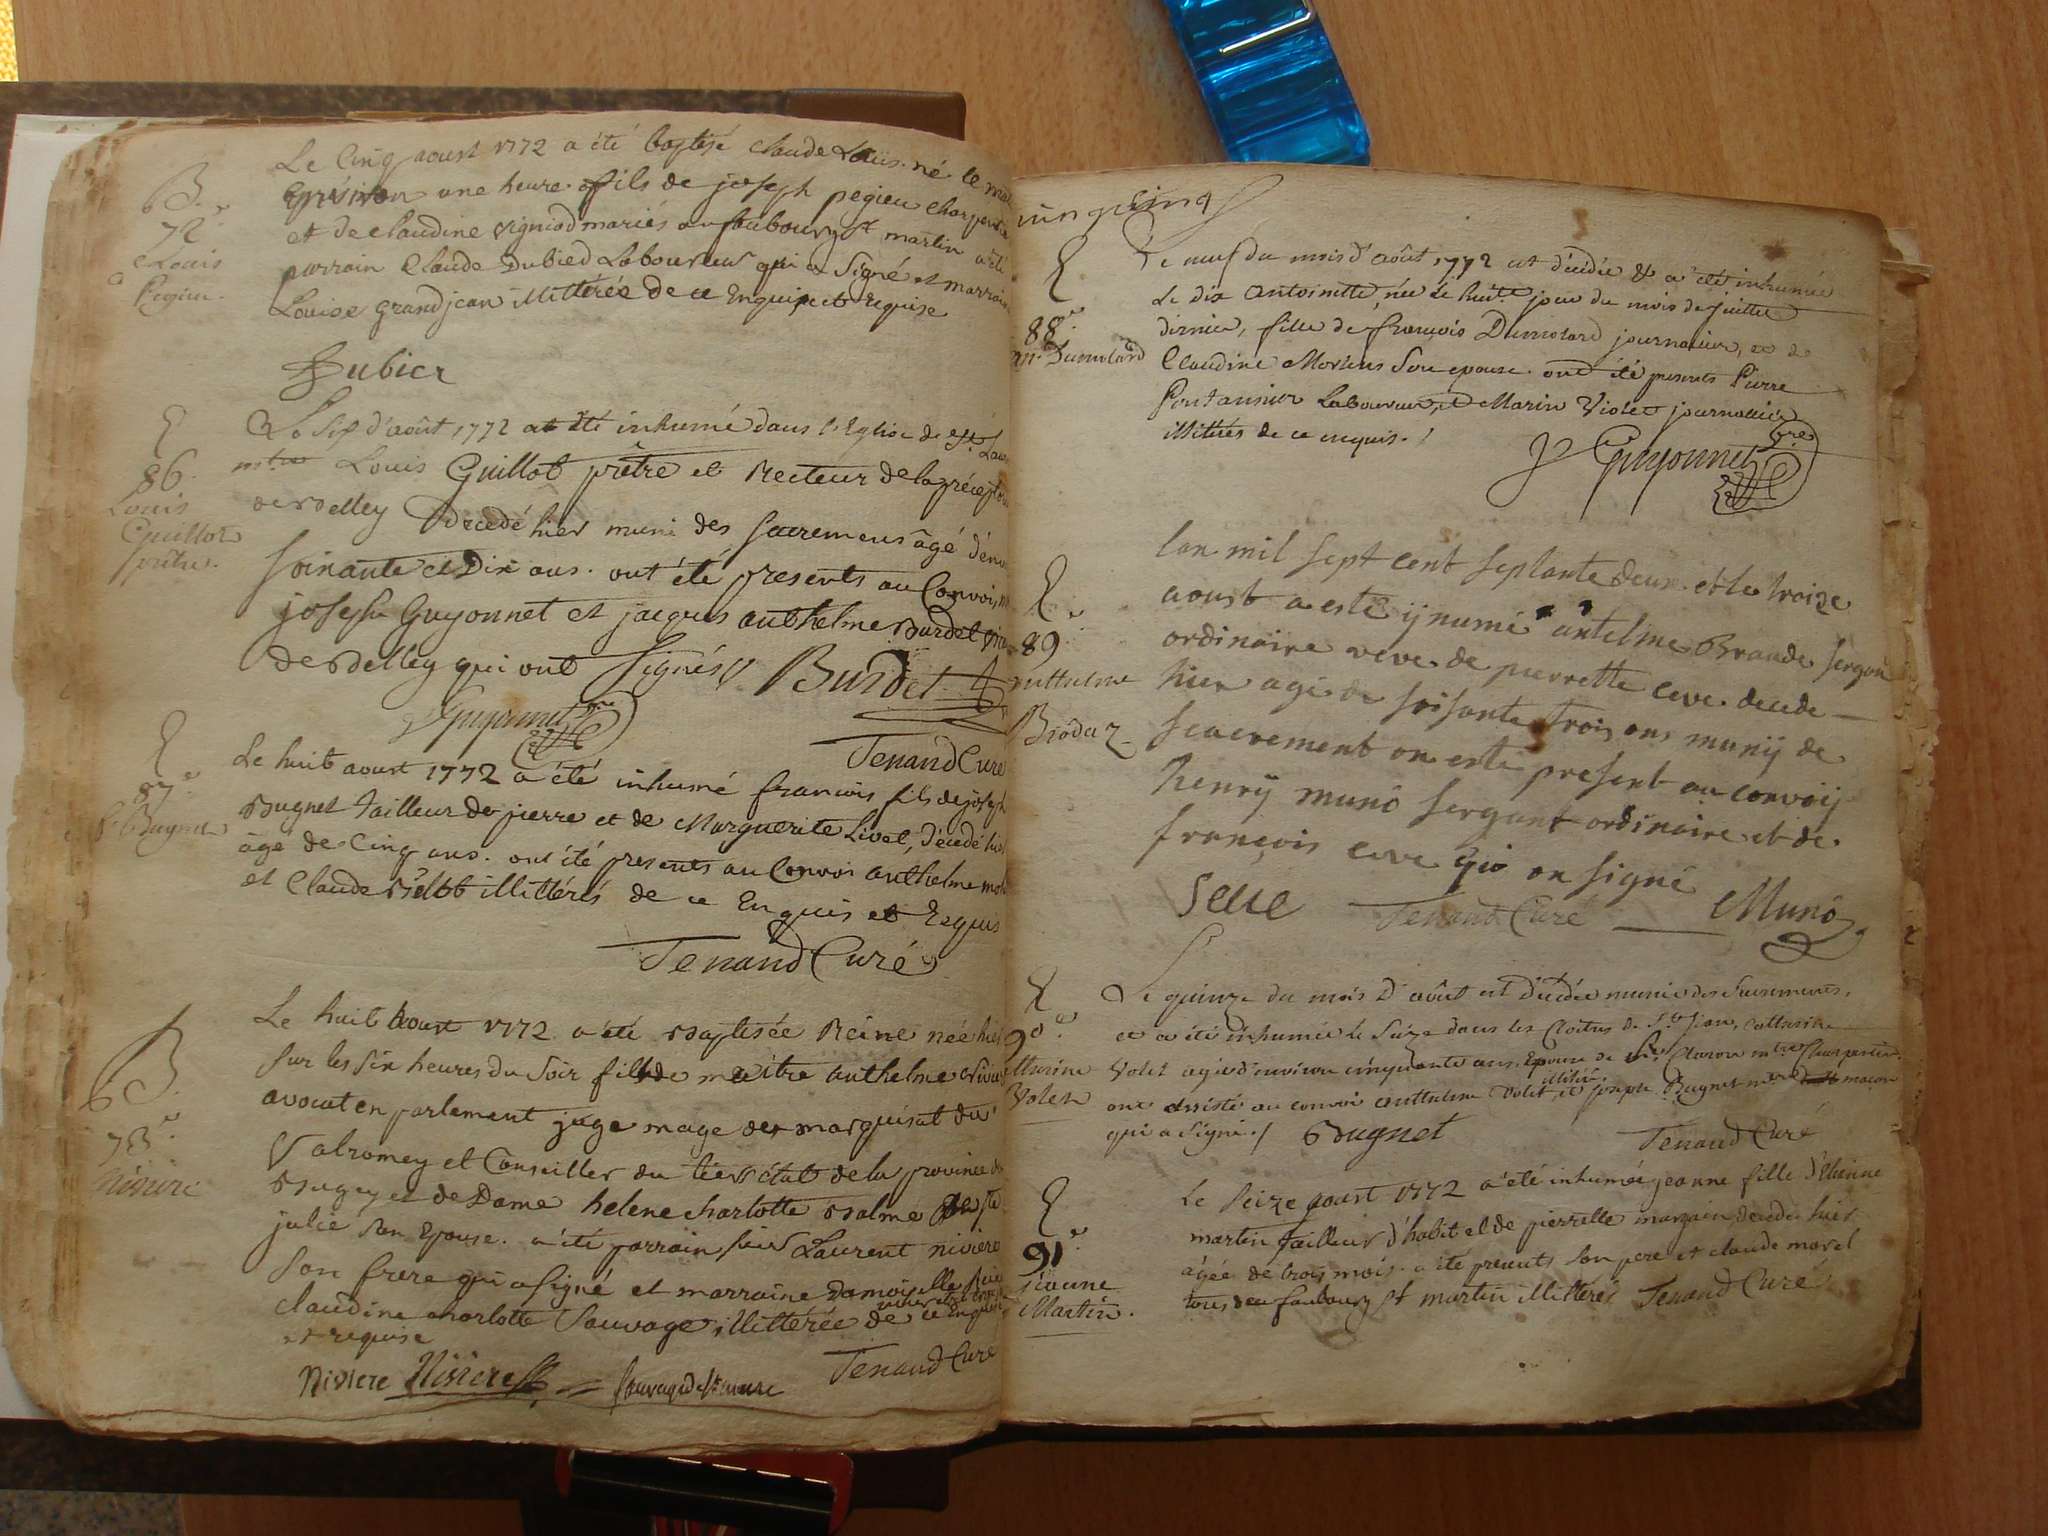 B.
72.e
Louis
Pegieu.
Le Cinq aoust 1772 a été baptisé Claude Louis. né le
environ une heure fils de joseph pegieu charpentie
et de Claudine vigniod mariés au faubourg st martin a été
parrain Claude Dubied Laboureur qui a signé et marrain
Louise grandjean illittérée de ce Enquise et Requise
Dubier
E
86
Louis
Guillot
prêtre.
Le Sept d'août 1772 a été inhumé dans l'Eglise de st Lau
mtre Louis Guillot prêtre et Recteur de la précepto
de Belley Décédé hier muni des sacremens âgé d'env
soixante et Dix ans. ont été presents au Convoi
joseph Guyonnet et jacques anthelme Burdet
de Belley qui ont signés Burdet
Guyonnet
Tenand Curé
E
87.e
f. Bugnet
Le huit aoust 1772 a été inhumé francois fils de joseph
Bugnet tailleur de pierre et de Marguerite Livet, Décédé hier
âgé de Cinq ans. ont été presents au Convoi anthelme
et Claude illittérés de ce Enquis et Requis
Tenand Curé
B.
73.e
Niviere
Le huit aoust 1772 a été Baptisée Reine née hier
sur les six heures du Soir fille de maître anthelme
avocat en parlement juge mage des marquisat du
Valromey et Conseiller du tiers état de la province de
Bugey et de Dame helene charlotte Balme
julie son Epouse. a été parrain Laurent niviere
son frere qui a signé et marraine Damoiselle
claudine charlotte Sauvage illittérée de ce Enquise
et requise
Niviere Niviere Tenand Curé
vingt cinq
E
88.e
Dumolard
Le neuf du mois d'août 1772 est décédée & a été inhumée
Le dix Antoinette, née le huit.e jour du mois de juillet
dernier, fille de françois Dumolard journalier, et de
Claudine Morteus son epouse. ont été presents Pierre
Fontannier Laboureur, et Marin Violet journalier
illitérés de ce enquis.
Guyonnet
E
89.e
anthelme
Brodaz
lan mil sept cent septante deux et le troize
aoust a esté ijnumé antelme Braude sergan
ordinaire veve de pierrette ceve decede
hier agé de soisante trois ans munij de
seacrement on esté present au convoij
henrij muno sergant ordinaire et de
françois ceve qio on signé
Seve Tenand Curé Muno
E
90.e
Volet
Le quinze du mois D'août est Décédée munie des Sacrements,
et a été inhumée le Seize dans les Cloitres de St Jean, Catherine
Volet agée d'environ cinquante ans, Epouse de Claron mtre Charpentier
ont assisté au convoi Anthelme Volet illitéré, et joseph Bugnet mtre macon
qui a signé. Bugnet Tenand Curé
E
91.e
Jeanne
Martin.
Le Seize aoust 1772 a été inhumée jeanne fille d'Etienne
martin tailleur d'habit et de pierrette mangain decedée hier
agée de trois mois. a été presents son pere et claude morel
tous deu faubourg st martin illitterés Tenand Curé